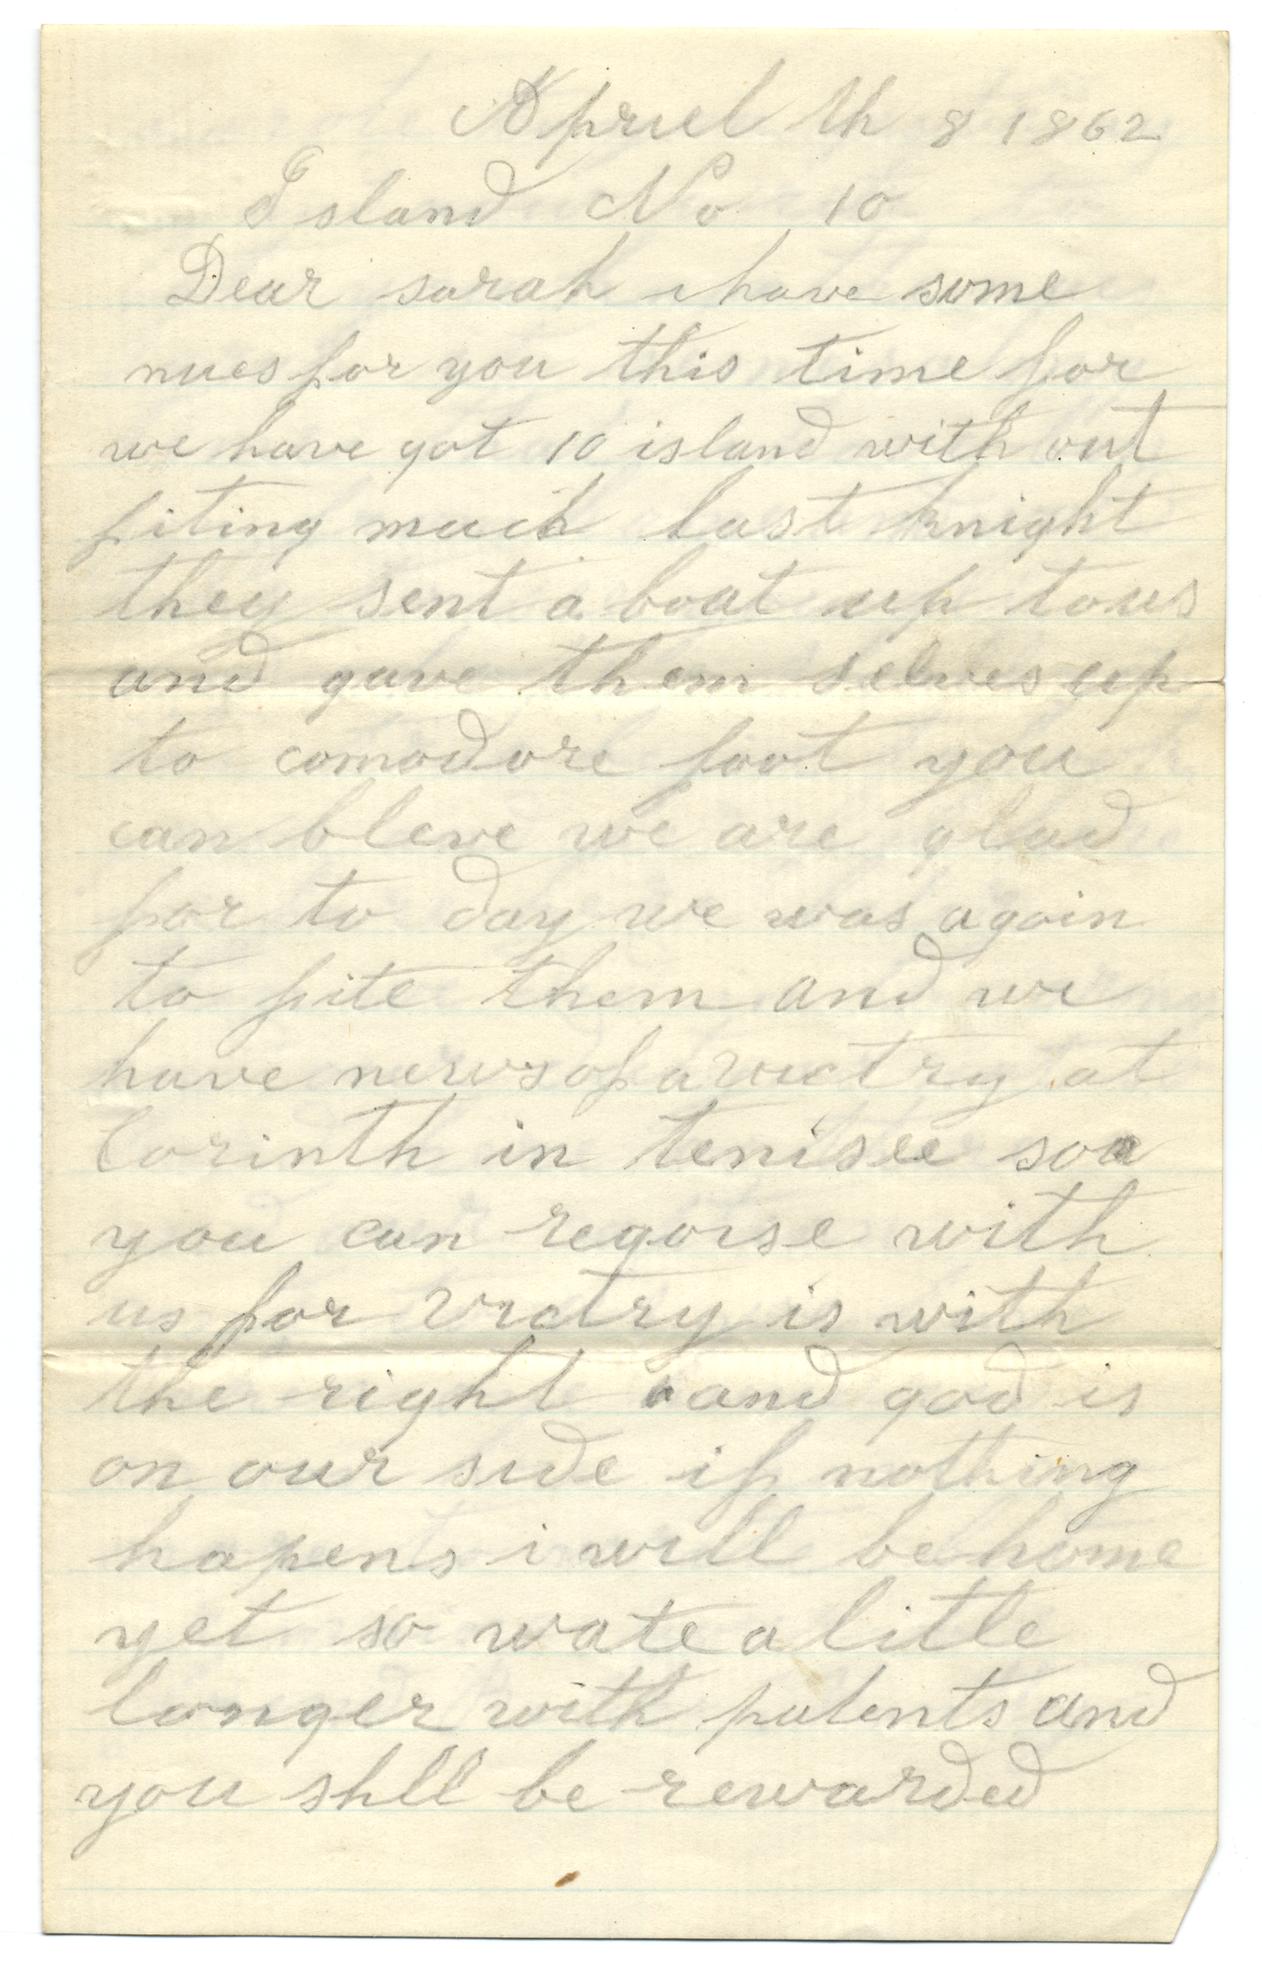 Apriel th 8 1862
Island No 10
Dear sarah i have some
nues for you this time for
we have got 10 island with out
fiting much last knight
they sent a boat up to us
and gave them selves up
to comodore foot you
can bleve we are glad
for to day we was again
to fite them and we
have news of a victry at
Corinth in tenisee soa
you can regoise with
us for victry is with
the right and god is
on our side if nothing
hapens i will be home
yet so wate a litle
longer with patents and
you shll be rewarded